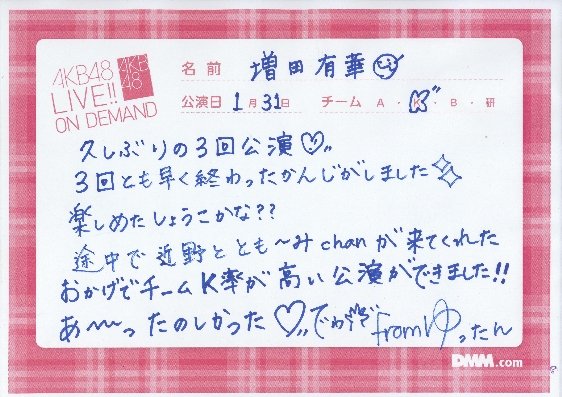 AKB48
LIVE!!
ON DEMAND
AKB
48
名前 増田有華
公演日 1月31日 チーム A・K・B・研
久しぶりの3回公演♡
3回とも早く終わったかんじがしました
楽しめたしょうこかな??
途中で近野ととも〜みchanが来てくれた
おかげでチームK率が高い公演ができました!!
あ〜〜ったのしかった♡でわ
fromゆったん
DMM.com